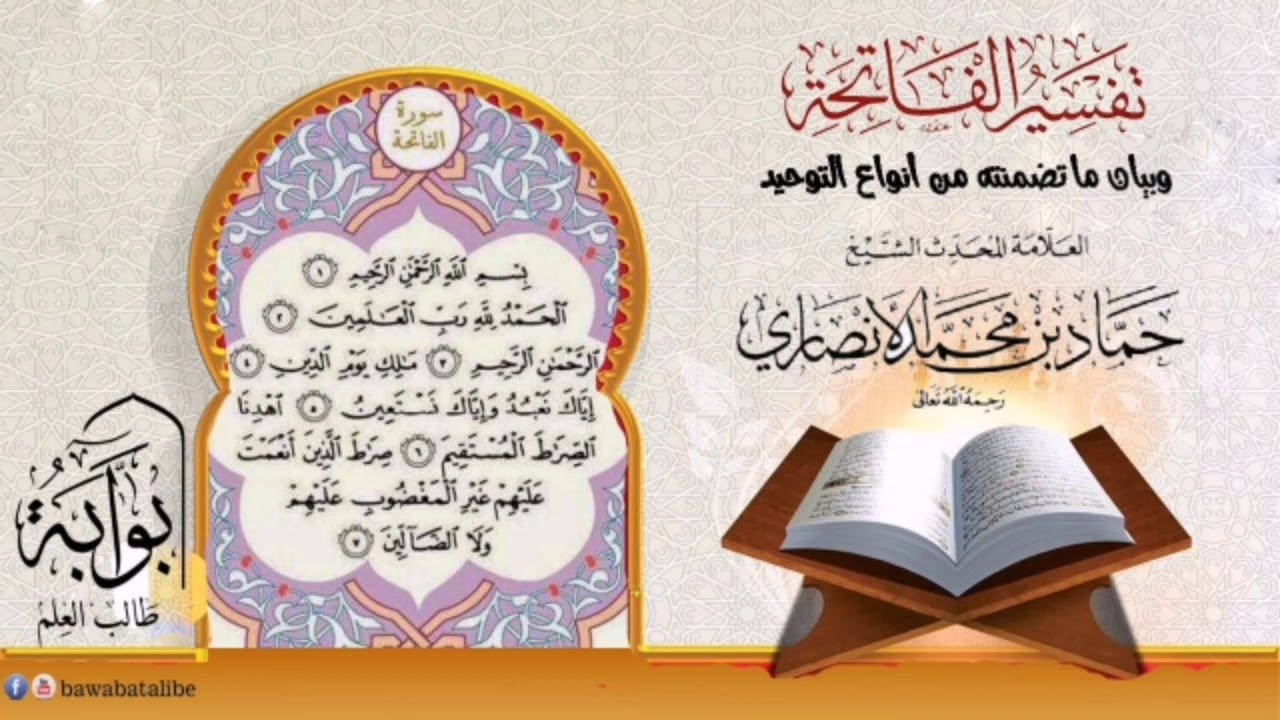 تَفْسِيرُ الْفَاتِحَةِ
وبيان ما تضمنته من أنواع التوحيد
العَلّامَة المُحَدِّث الشَّيْخ
حَمَّاد بن مُحَمَّد الأنصَاري
رَحِمَهُ اللهُ تَعَالَى
سورة
الفاتحة
بِسْمِ ٱللَّهِ ٱلرَّحْمَٰنِ ٱلرَّحِيمِ ١
ٱلْحَمْدُ لِلَّهِ رَبِّ ٱلْعَٰلَمِينَ ٢
ٱلرَّحْمَٰنِ ٱلرَّحِيمِ ٣ مَٰلِكِ يَوْمِ ٱلدِّينِ ٤
إِيَّاكَ نَعْبُدُ وَإِيَّاكَ نَسْتَعِينُ ٥ ٱهْدِنَا
ٱلصِّرَٰطَ ٱلْمُسْتَقِيمَ ٦ صِرَٰطَ ٱلَّذِينَ أَنْعَمْتَ
عَلَيْهِمْ غَيْرِ ٱلْمَغْضُوبِ عَلَيْهِمْ
وَلَا ٱلضَّآلِّينَ ٧
بَوَّابَةُ
طَالِبِ العِلمِ
bawabatalibe